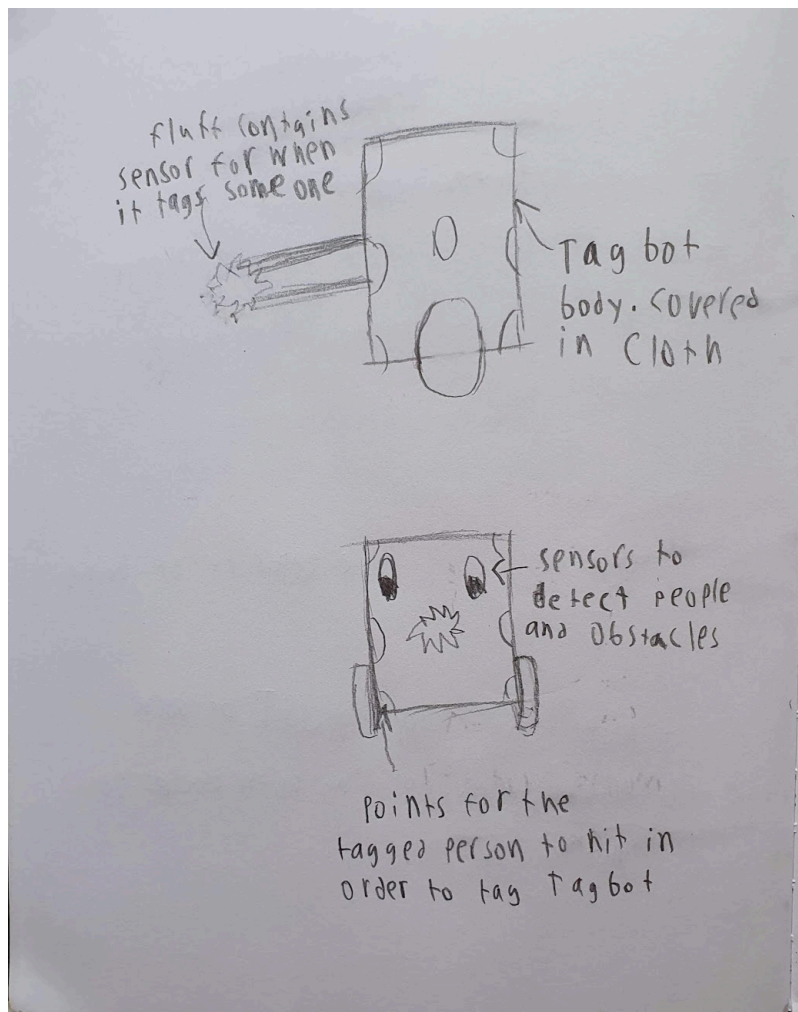 fluff contains
sensor for when
it tags someone
Tagbot
body. covered
in cloth
sensors to
detect people
and obstacles
points for the
tagged person to hit in
order to tag Tagbot